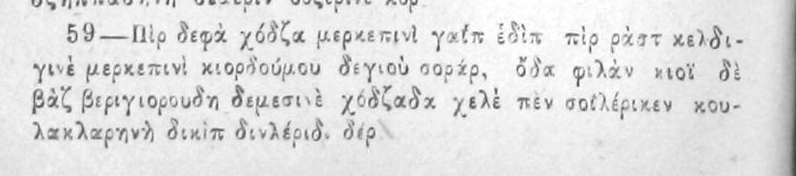 59—Πὶρ δεφὰ χόδζα μερκεπινὶ γαΐπ ἐδὶπ πὶρ ρὰστ κελδι-
γινὲ μερκεπινὶ κιορδούμου δεγιοὺ σοράρ, ὄδα φιλὰν κιοϊ δὲ
βὰζ βεριγιορουδη δεμεσινὲ χόδζαδα χελὲ πὲν σοϊλέρικεν κου-
λακλαρηνὴ δικὶπ δινλέριδ. δέρ